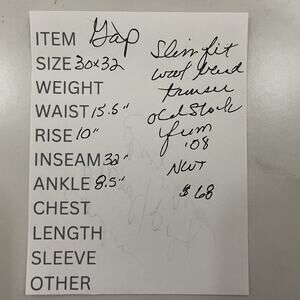 ITEM Gap
SIZE 30x32
WEIGHT
WAIST 15.5"
RISE 10"
INSEAM 32"
ANKLE 8.5"
CHEST
LENGTH
SLEEVE
OTHER
Slim fit
wool blend
trouser
old stock
from
'08
NWT
$68